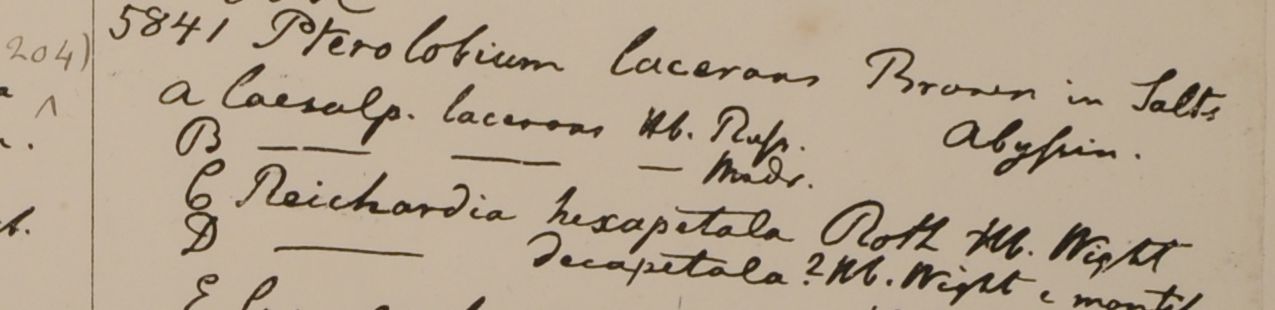 204)
5841 Pterolobium lacerans Brown in Salts
Abyssin.
a Caesalp. lacerans Hb. Russ.
B — — — Madr.
C Reichardia hexapetala Roth Hb. Wight
D — decapetala? Hb. Wight e montib
E